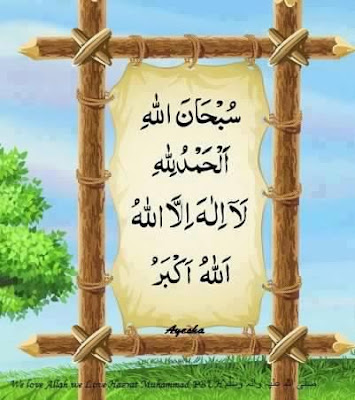 سُبْحَانَ اللهِ
اَلْحَمْدُ لِلهِ
لَآ اِلٰهَ اِلَّا اللهُ
اَللهُ اَكْبَرُ
Ayesha
We love Allah we Love Hazrat Muhammad PBUH صلى الله عليه واله وسلم